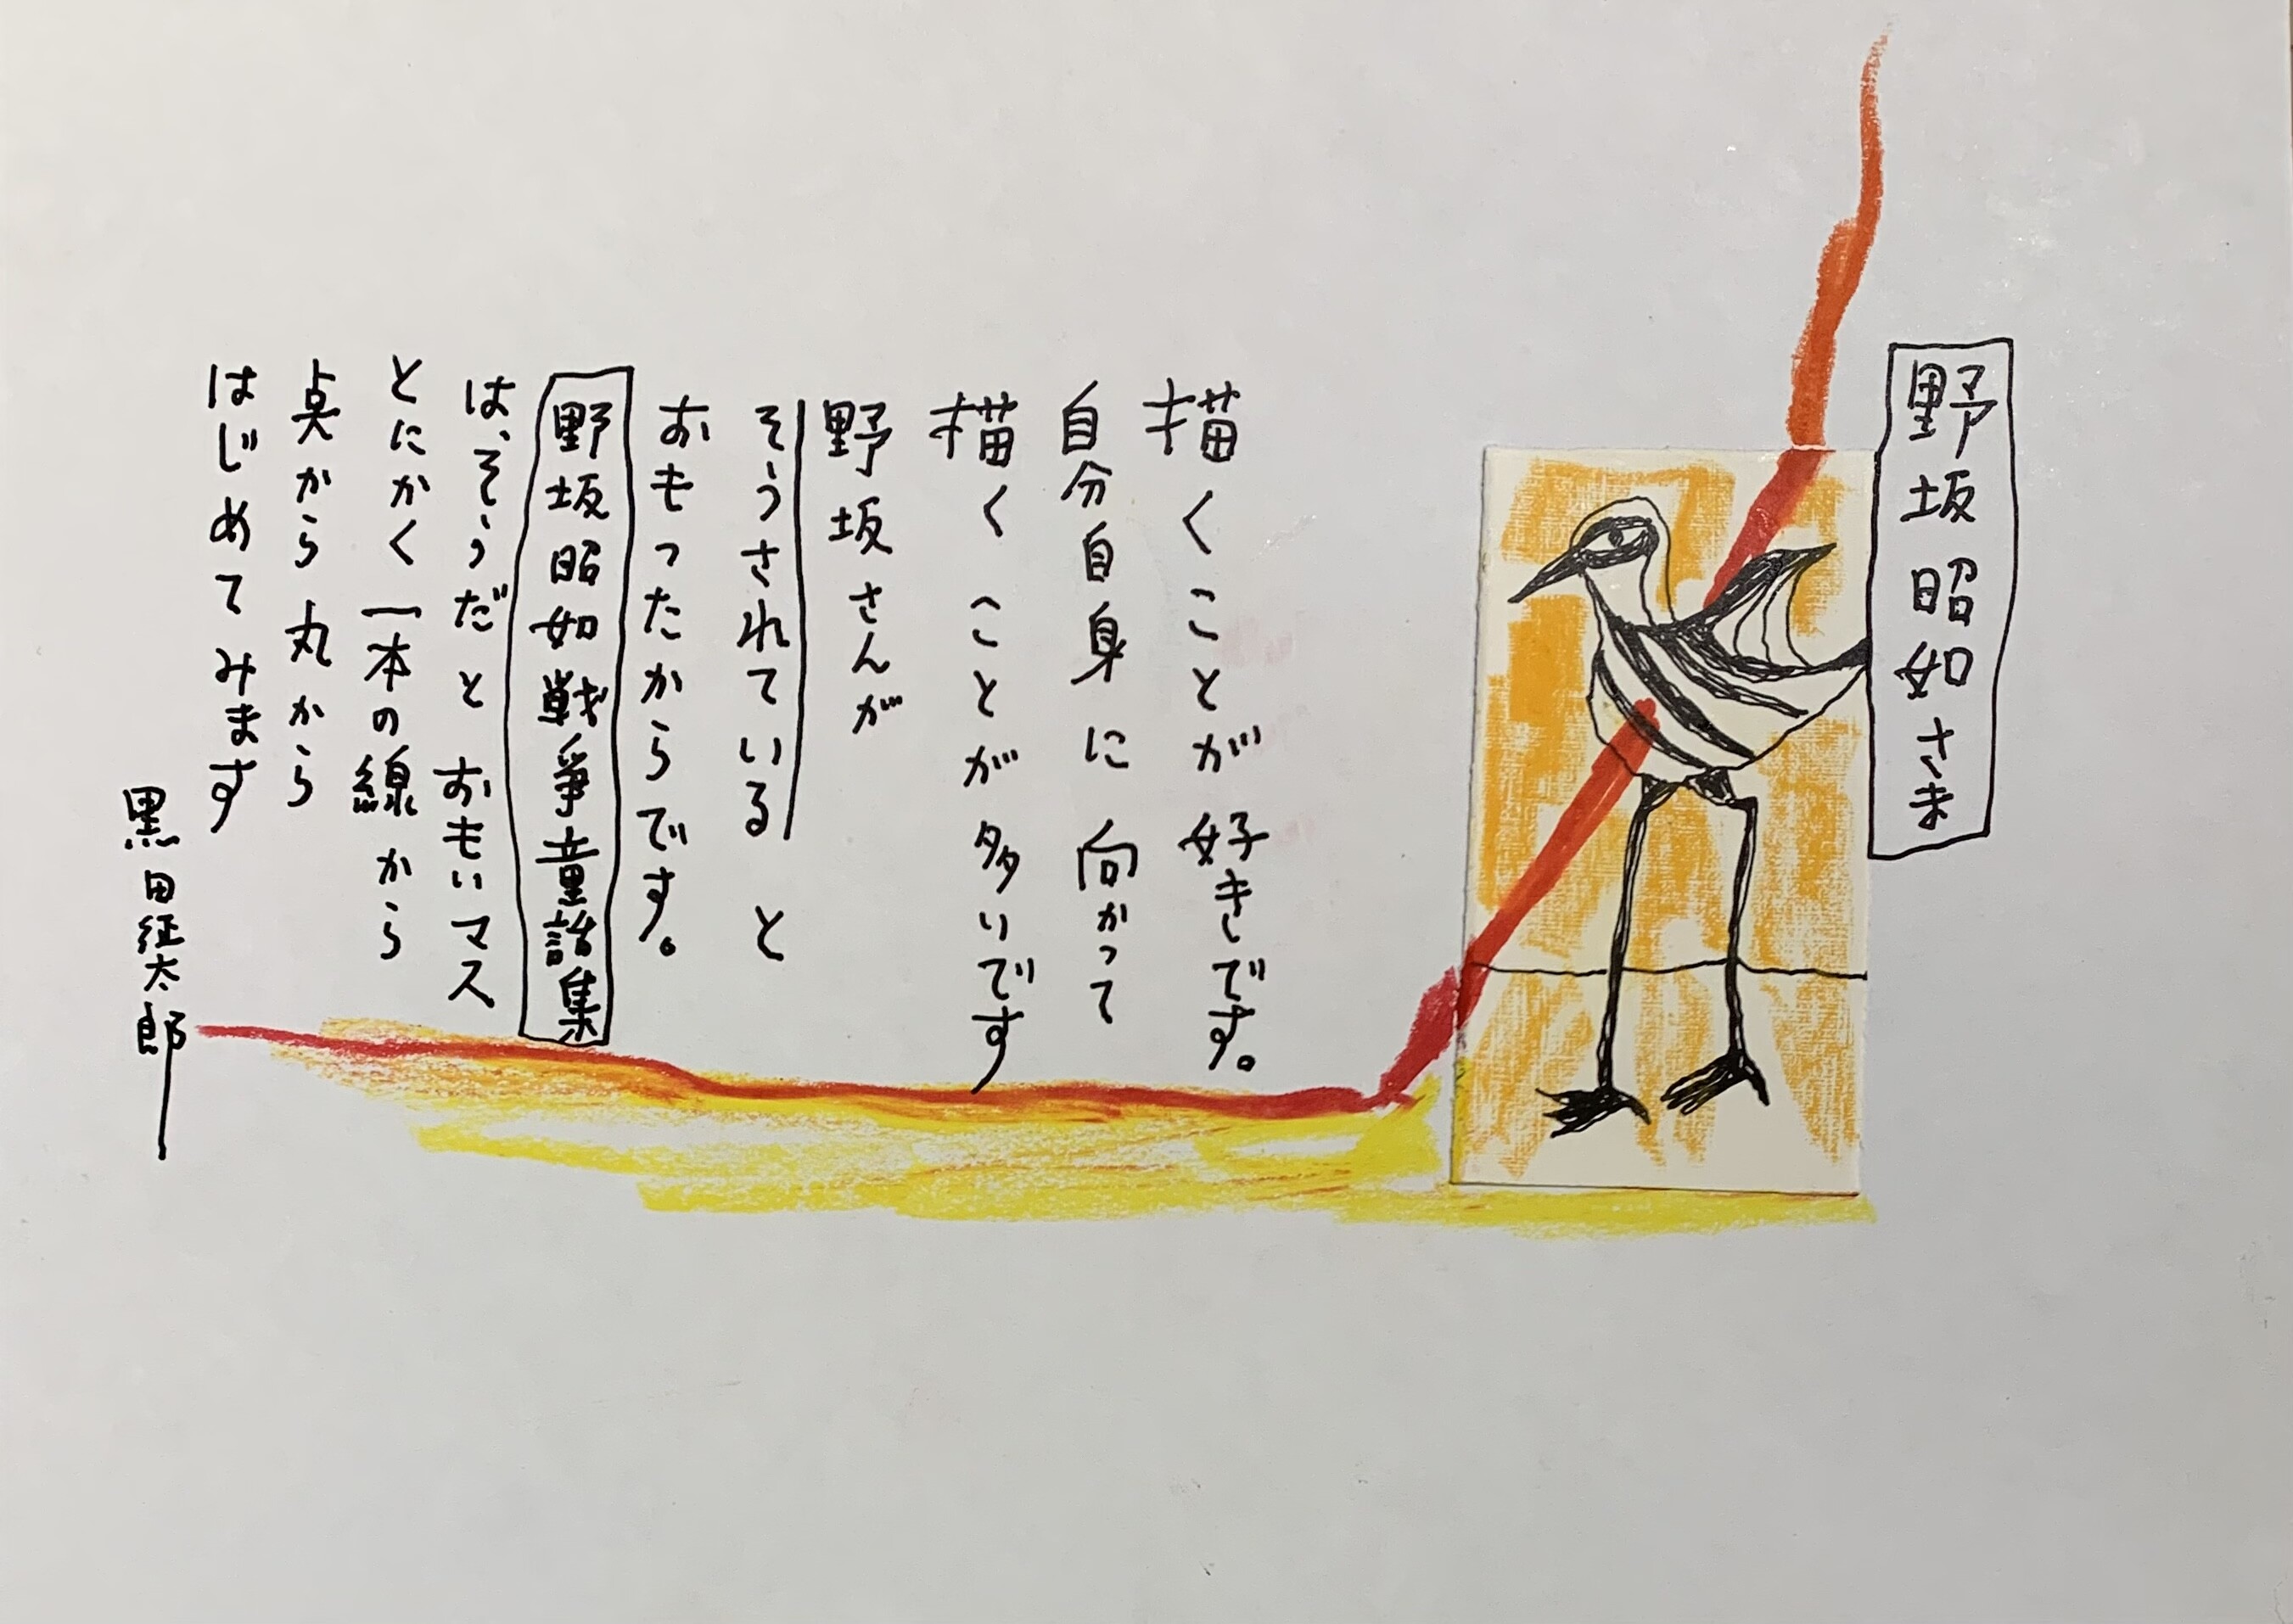 野坂昭如さま
描くことが好きです。
自分自身に向かって
描くことが多いです
野坂さんが
そうされていると
おもったからです。
野坂昭如戦争童話集
は、そうだとおもいマス
とにかく一本の線から
点から丸から
はじめてみます
黒田征太郎